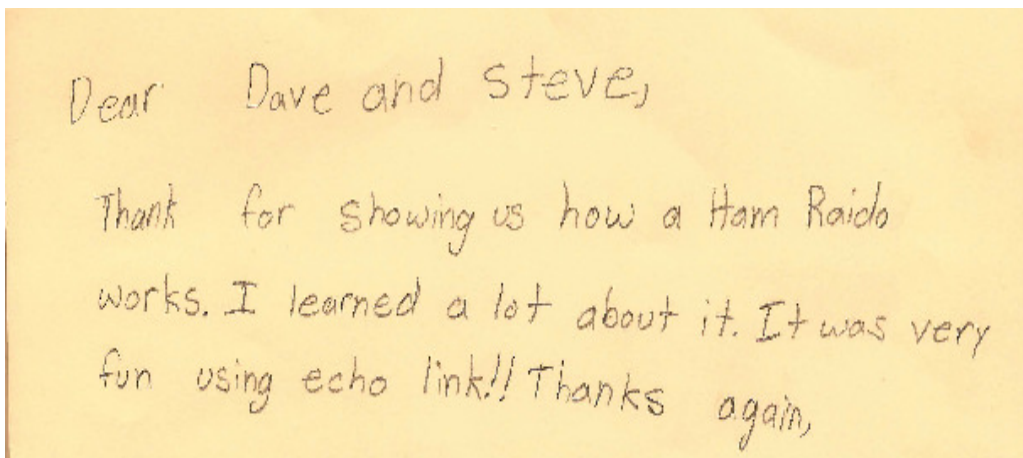 Dear Dave and Steve,
Thank for showing us how a Ham Raido
works. I learned a lot about it. It was very
fun using echo link!! Thanks again,